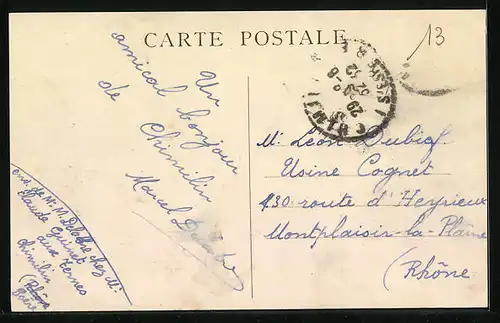 CARTE POSTALE
13
Un
amical bonjour
de Chimilin
Marcel
M. Léon Dubief
Usine Cognet
130 route d'Heyrieux
Montplaisir-la-Plaine
(Rhône
env. de M. M. Delabre chez M.
Claude Guinet
aux Ternes
Chimilin
(Rhône
Isère